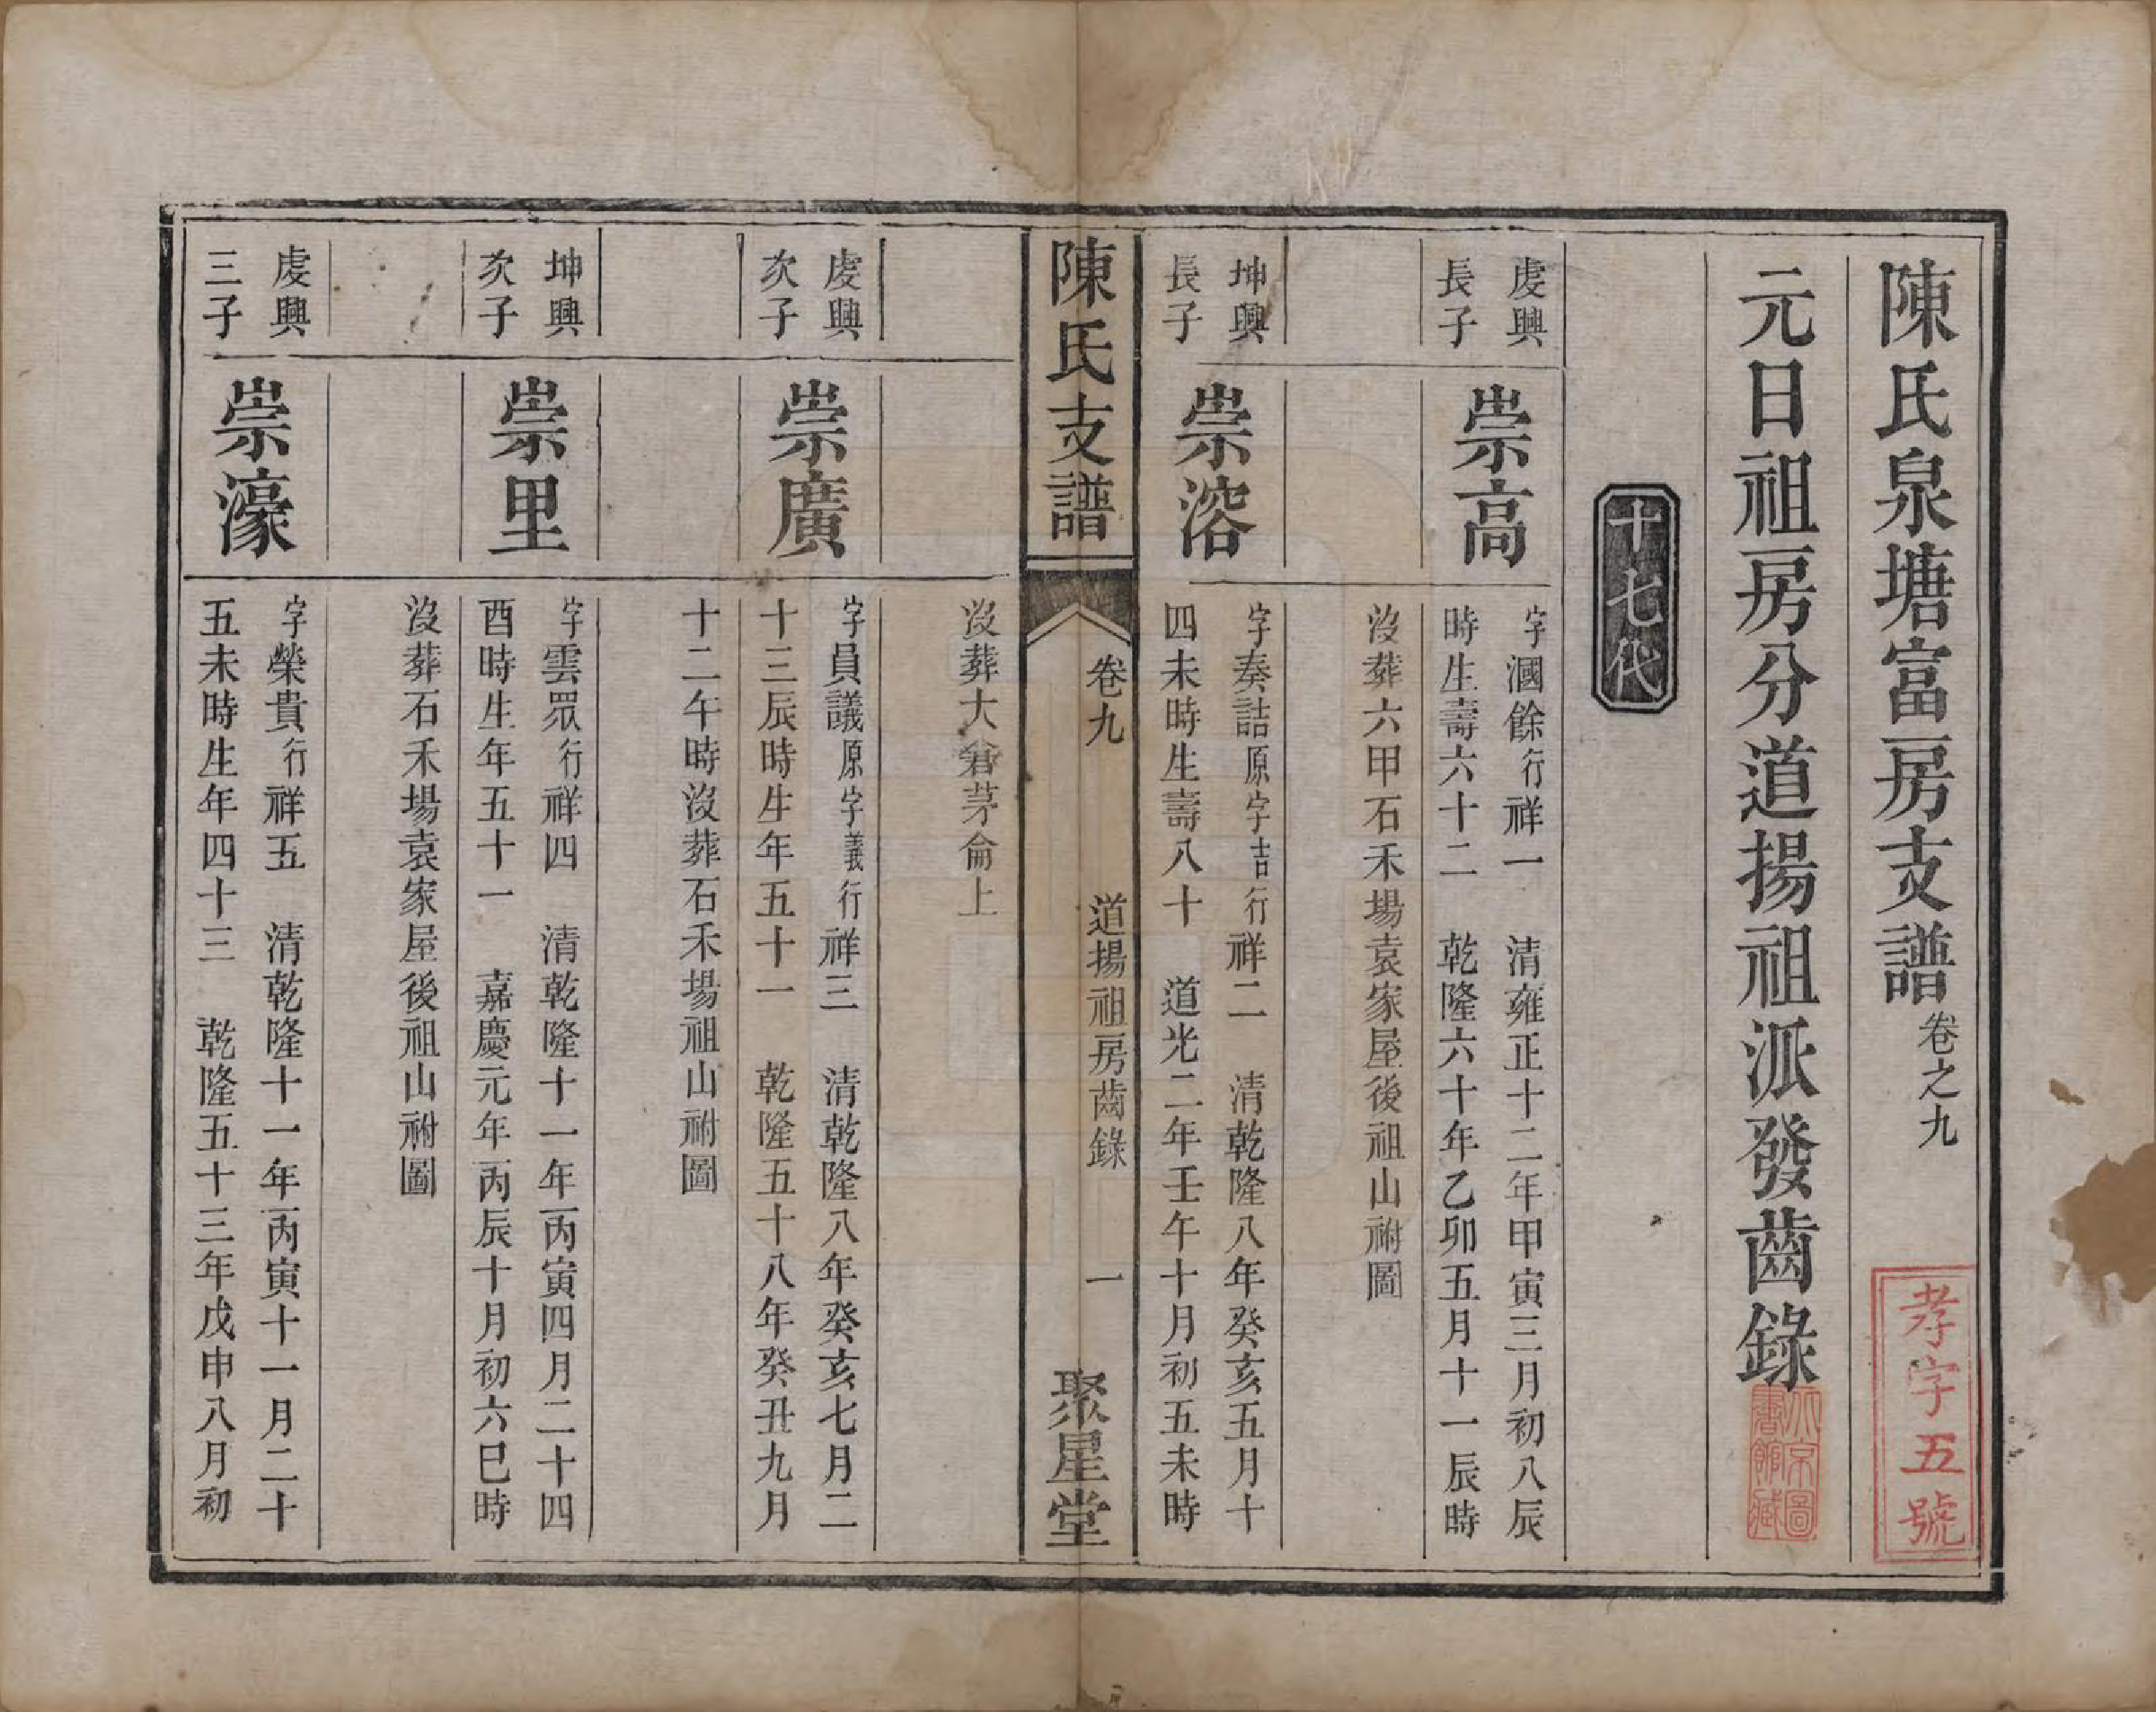 陳氏泉塘富房支譜卷之九
孝字五號
元日祖房分道揚祖派發齒錄
北京圖書館藏
十七代
虔興長子
崇高
字漍餘行祥一　清雍正十二年甲寅三月初八辰
時生壽六十二　乾隆六十年乙卯五月十一辰時
沒葬六甲石禾場袁家屋後祖山祔圖
坤興長子
崇溶
字奏詰原字吉行祥二　清乾隆八年癸亥五月十
四未時生壽八十　道光二年壬午十月初五未時
陳氏支譜
卷九　道揚祖房齒錄　一
聚星堂
沒葬大茅侖上
虔興次子
崇廣
字員議原字義行祥三　清乾隆八年癸亥七月二
十三辰時生年五十一　乾隆五十八年癸丑九月
十二午時沒葬石禾場祖山祔圖
坤興次子
崇里
字雲眾行祥四　清乾隆十一年丙寅四月二十四
酉時生年五十一　嘉慶元年丙辰十月初六巳時
沒葬石禾場袁家屋後祖山祔圖
虔興三子
崇濠
字榮貴行祥五　清乾隆十一年丙寅十一月二十
五未時生年四十三　乾隆五十三年戊申八月初